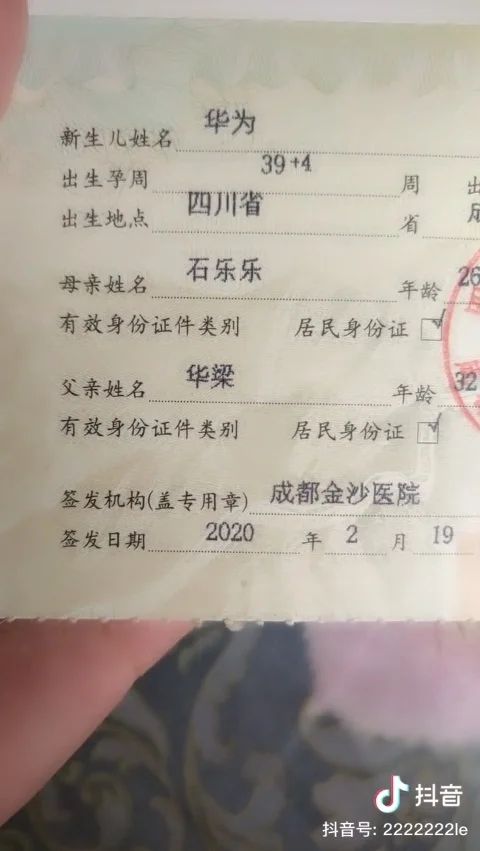 新生儿姓名 华为
出生孕周 39+4 周
出生地点 四川省 省
母亲姓名 石乐乐 年龄 26
有效身份证件类别 居民身份证 ☑
父亲姓名 华梁 年龄 32
有效身份证件类别 居民身份证 ☑
签发机构(盖专用章) 成都金沙医院
签发日期 2020 年 2 月 19
抖音
抖音号: 2222222le